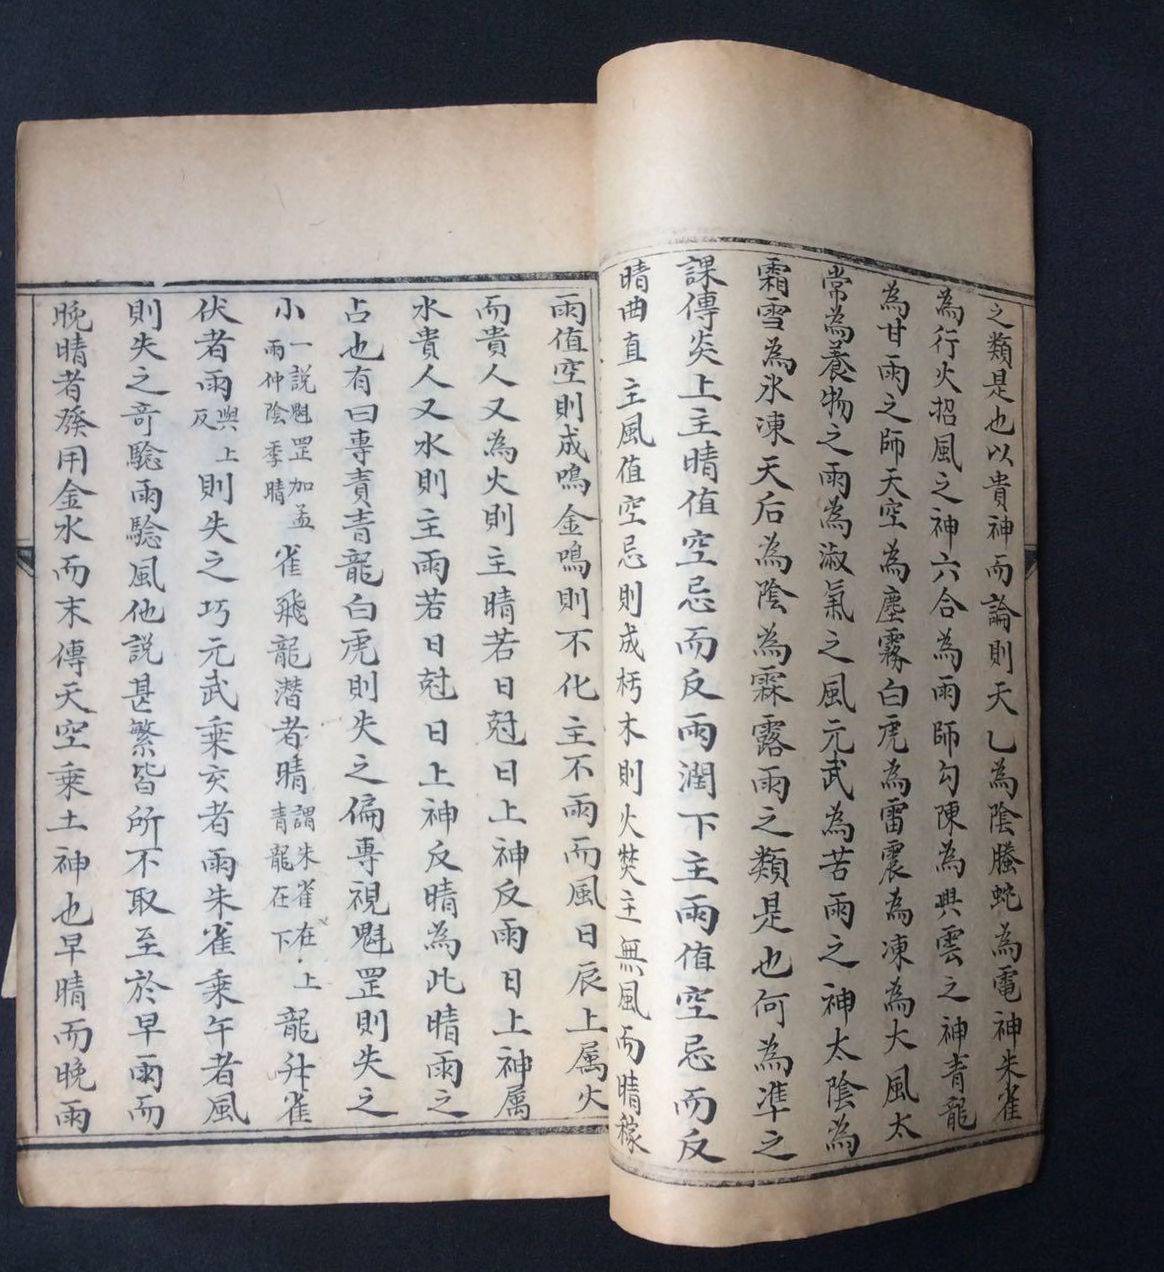 之類是也以貴神而論則天乙為陰螣蛇為電神朱雀
為行火招風之神六合為雨師勾陳為興雲之神青龍
為甘雨之師天空為塵霧白虎為雷震為凍為大風太
常為養物之雨為淑氣之風元武為苦雨之神太陰為
霜雪為氷凍天后為陰為霖露雨之類是也何為準之
課傳炎上主晴值空忌而反雨潤下主雨值空忌而反
晴曲直主風值空忌則成朽木則火焚主無風而晴稼
雨值空則成鳴金鳴則不化主不雨而風日辰上属火
而貴人又為火則主晴若日尅日上神反雨日上神属
水貴人又水則主雨若日尅日上神反晴為此晴雨之
占也有曰專責青龍白虎則失之偏專視魁罡則失之
小一說魁罡加孟雨仲陰季晴雀飛龍潛者晴謂朱雀在上青龍在下龍升雀
伏者雨與上反則失之巧元武乘亥者雨朱雀乘午者風
則失之奇騐雨騐風他說甚繁皆所不取至於早雨而
晚晴者發用金水而末傳天空乘土神也早晴而晚雨